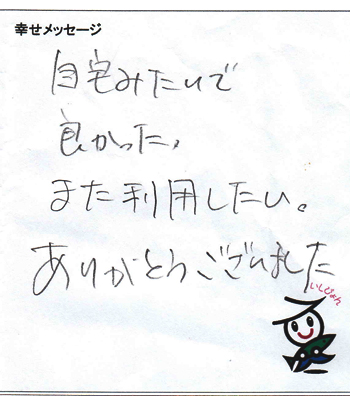 幸せメッセージ
自宅みたいで
良かった、
また利用したい。
ありがとうございました
いしぴょん